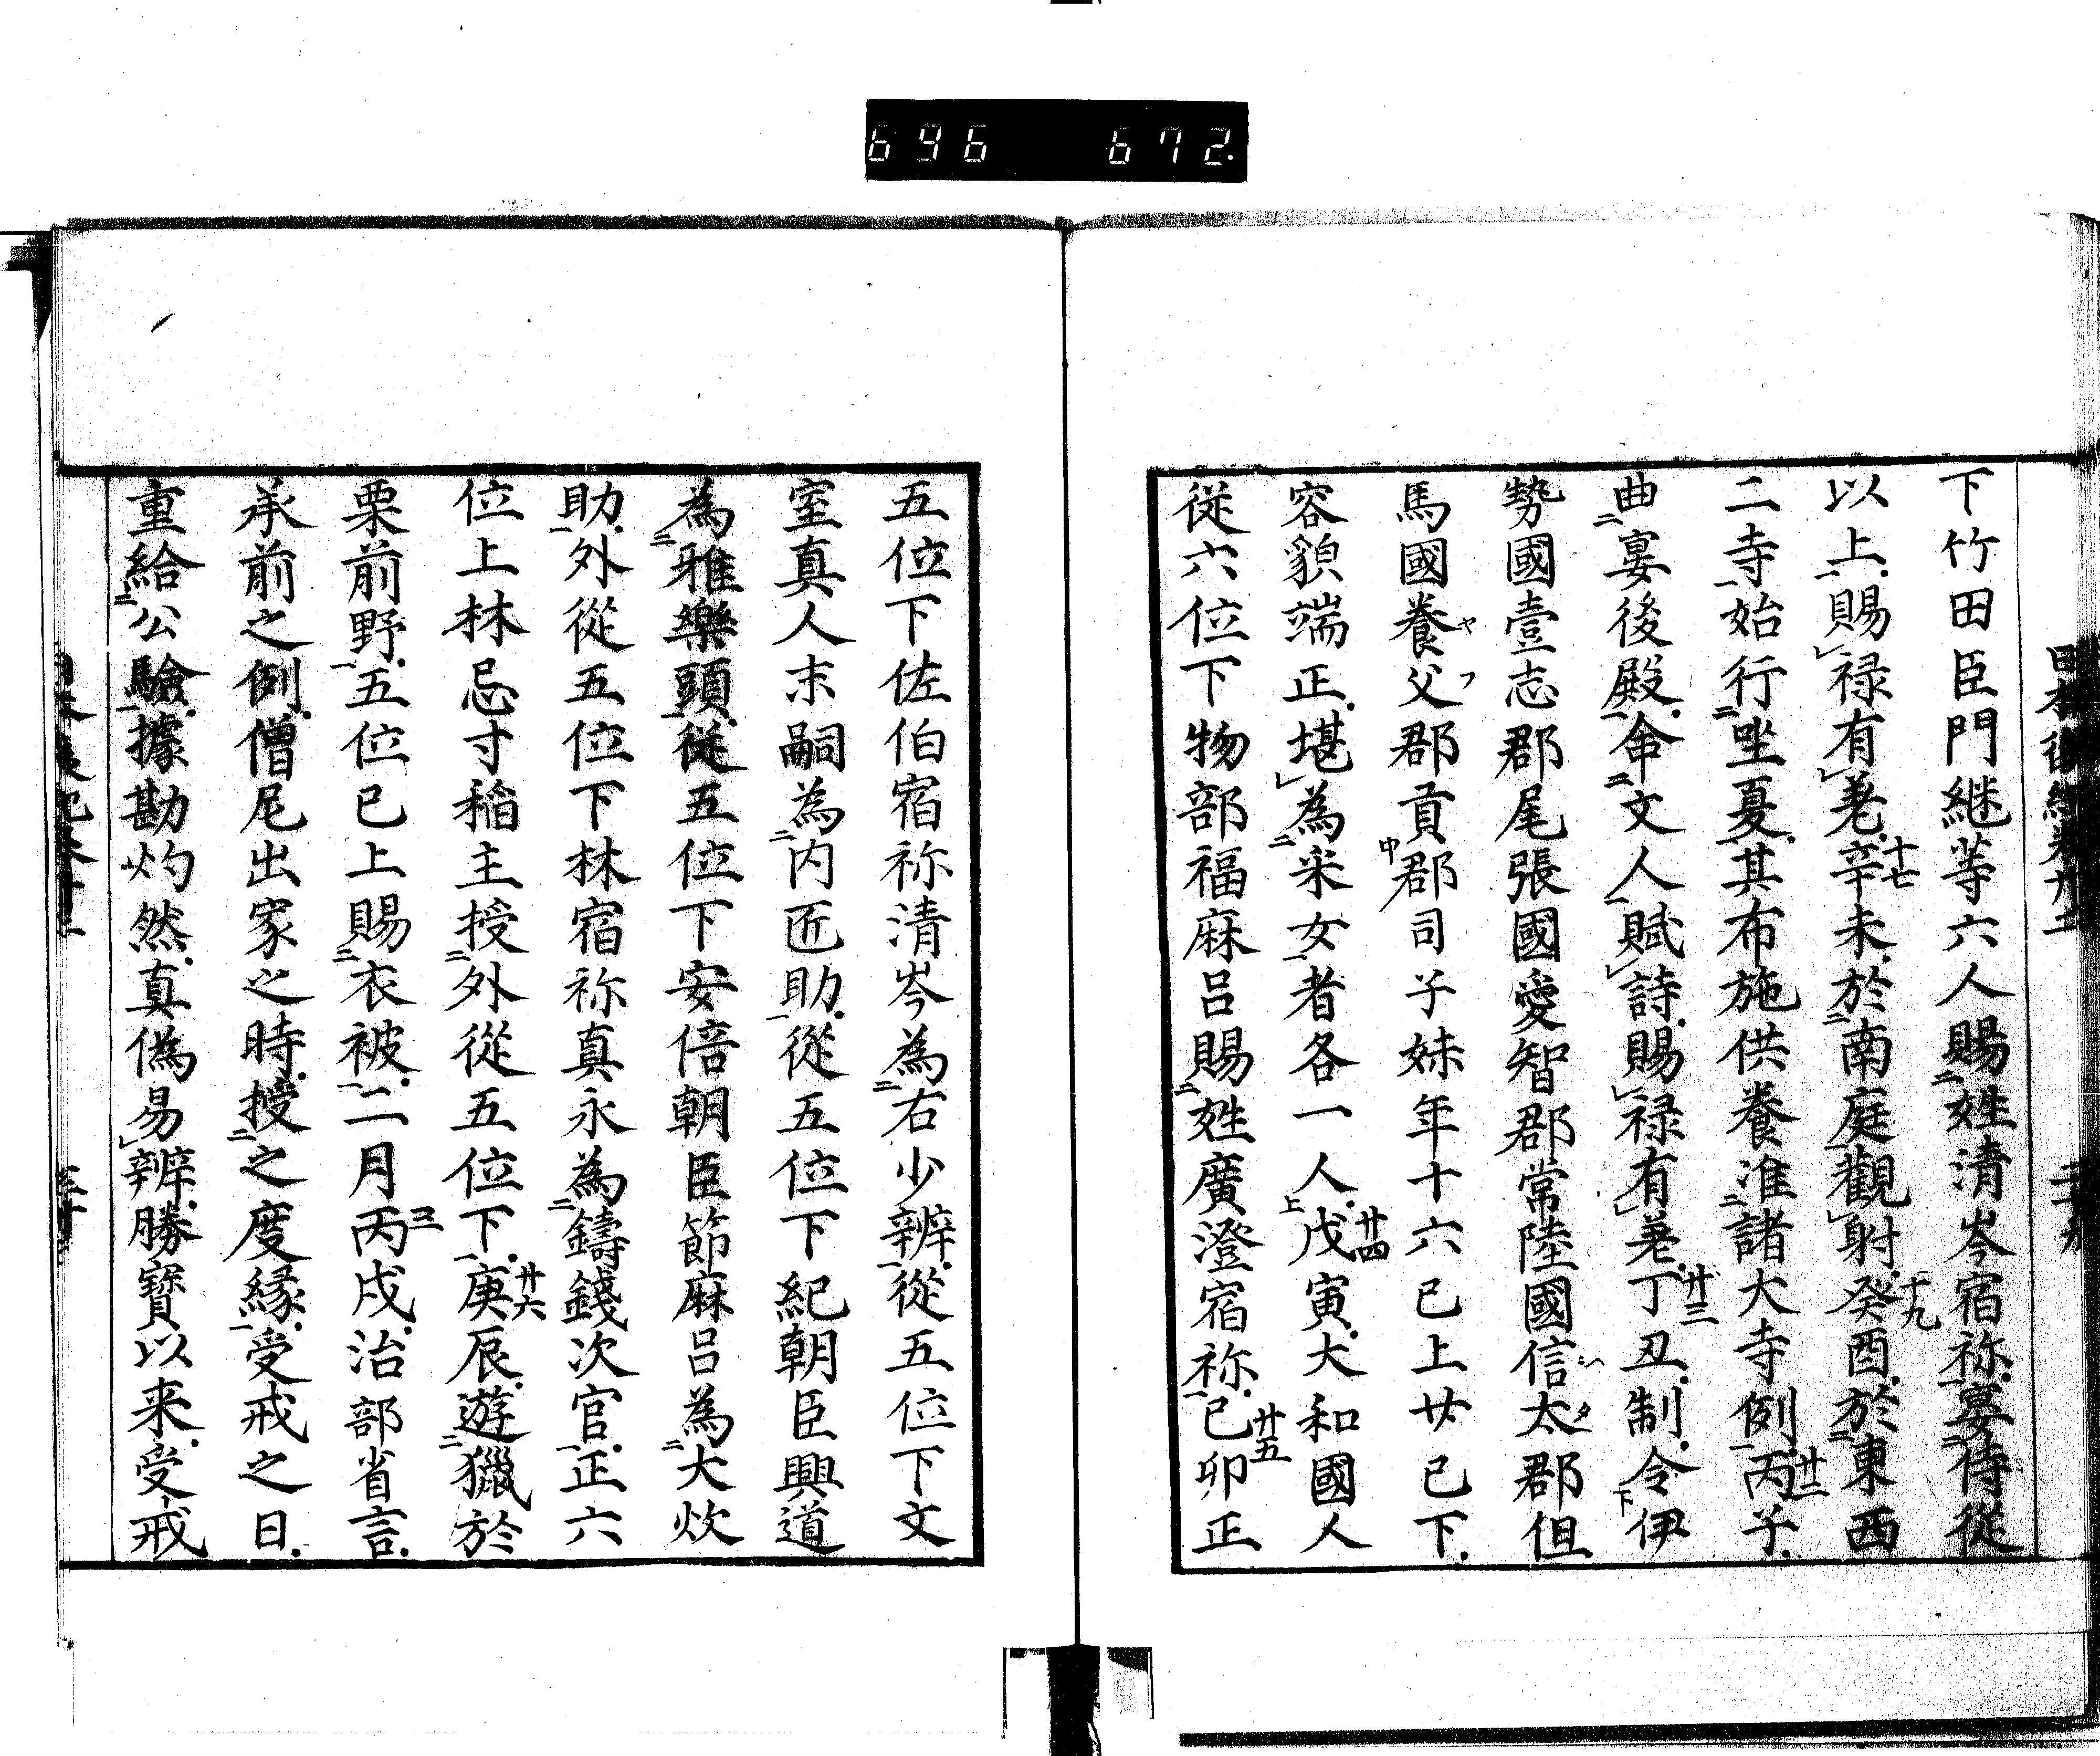 696 672.
下竹田臣門継等六人賜姓清岑宿祢宴侍従
以上賜禄有差辛未於南庭觀射癸酉於東西
二寺始行坐夏其布施供養准諸大寺例丙子
曲宴後殿命文人賦詩賜禄有差丁丑制令伊
勢國壹志郡尾張國愛智郡常陸國信太郡但
馬國養父郡貢郡司子妹年十六已上廿已下
容貌端正堪為采女者各一人戊寅大和國人
従六位下物部福麻呂賜姓廣澄宿祢己卯正
五位下佐伯宿祢清岑為右少辨從五位下文
室真人末嗣為内匠助從五位下紀朝臣興道
為雅樂頭従五位下安倍朝臣節麻呂為大炊
助外從五位下林宿祢真永為鑄錢次官正六
位上林忌寸稲主授外從五位下庚辰遊獵於
栗前野五位已上賜衣被二月丙戌治部省言
承前之例僧尼出家之時授之度縁受戒之日
重給公驗據勘灼然真僞易辨勝寳以来受戒